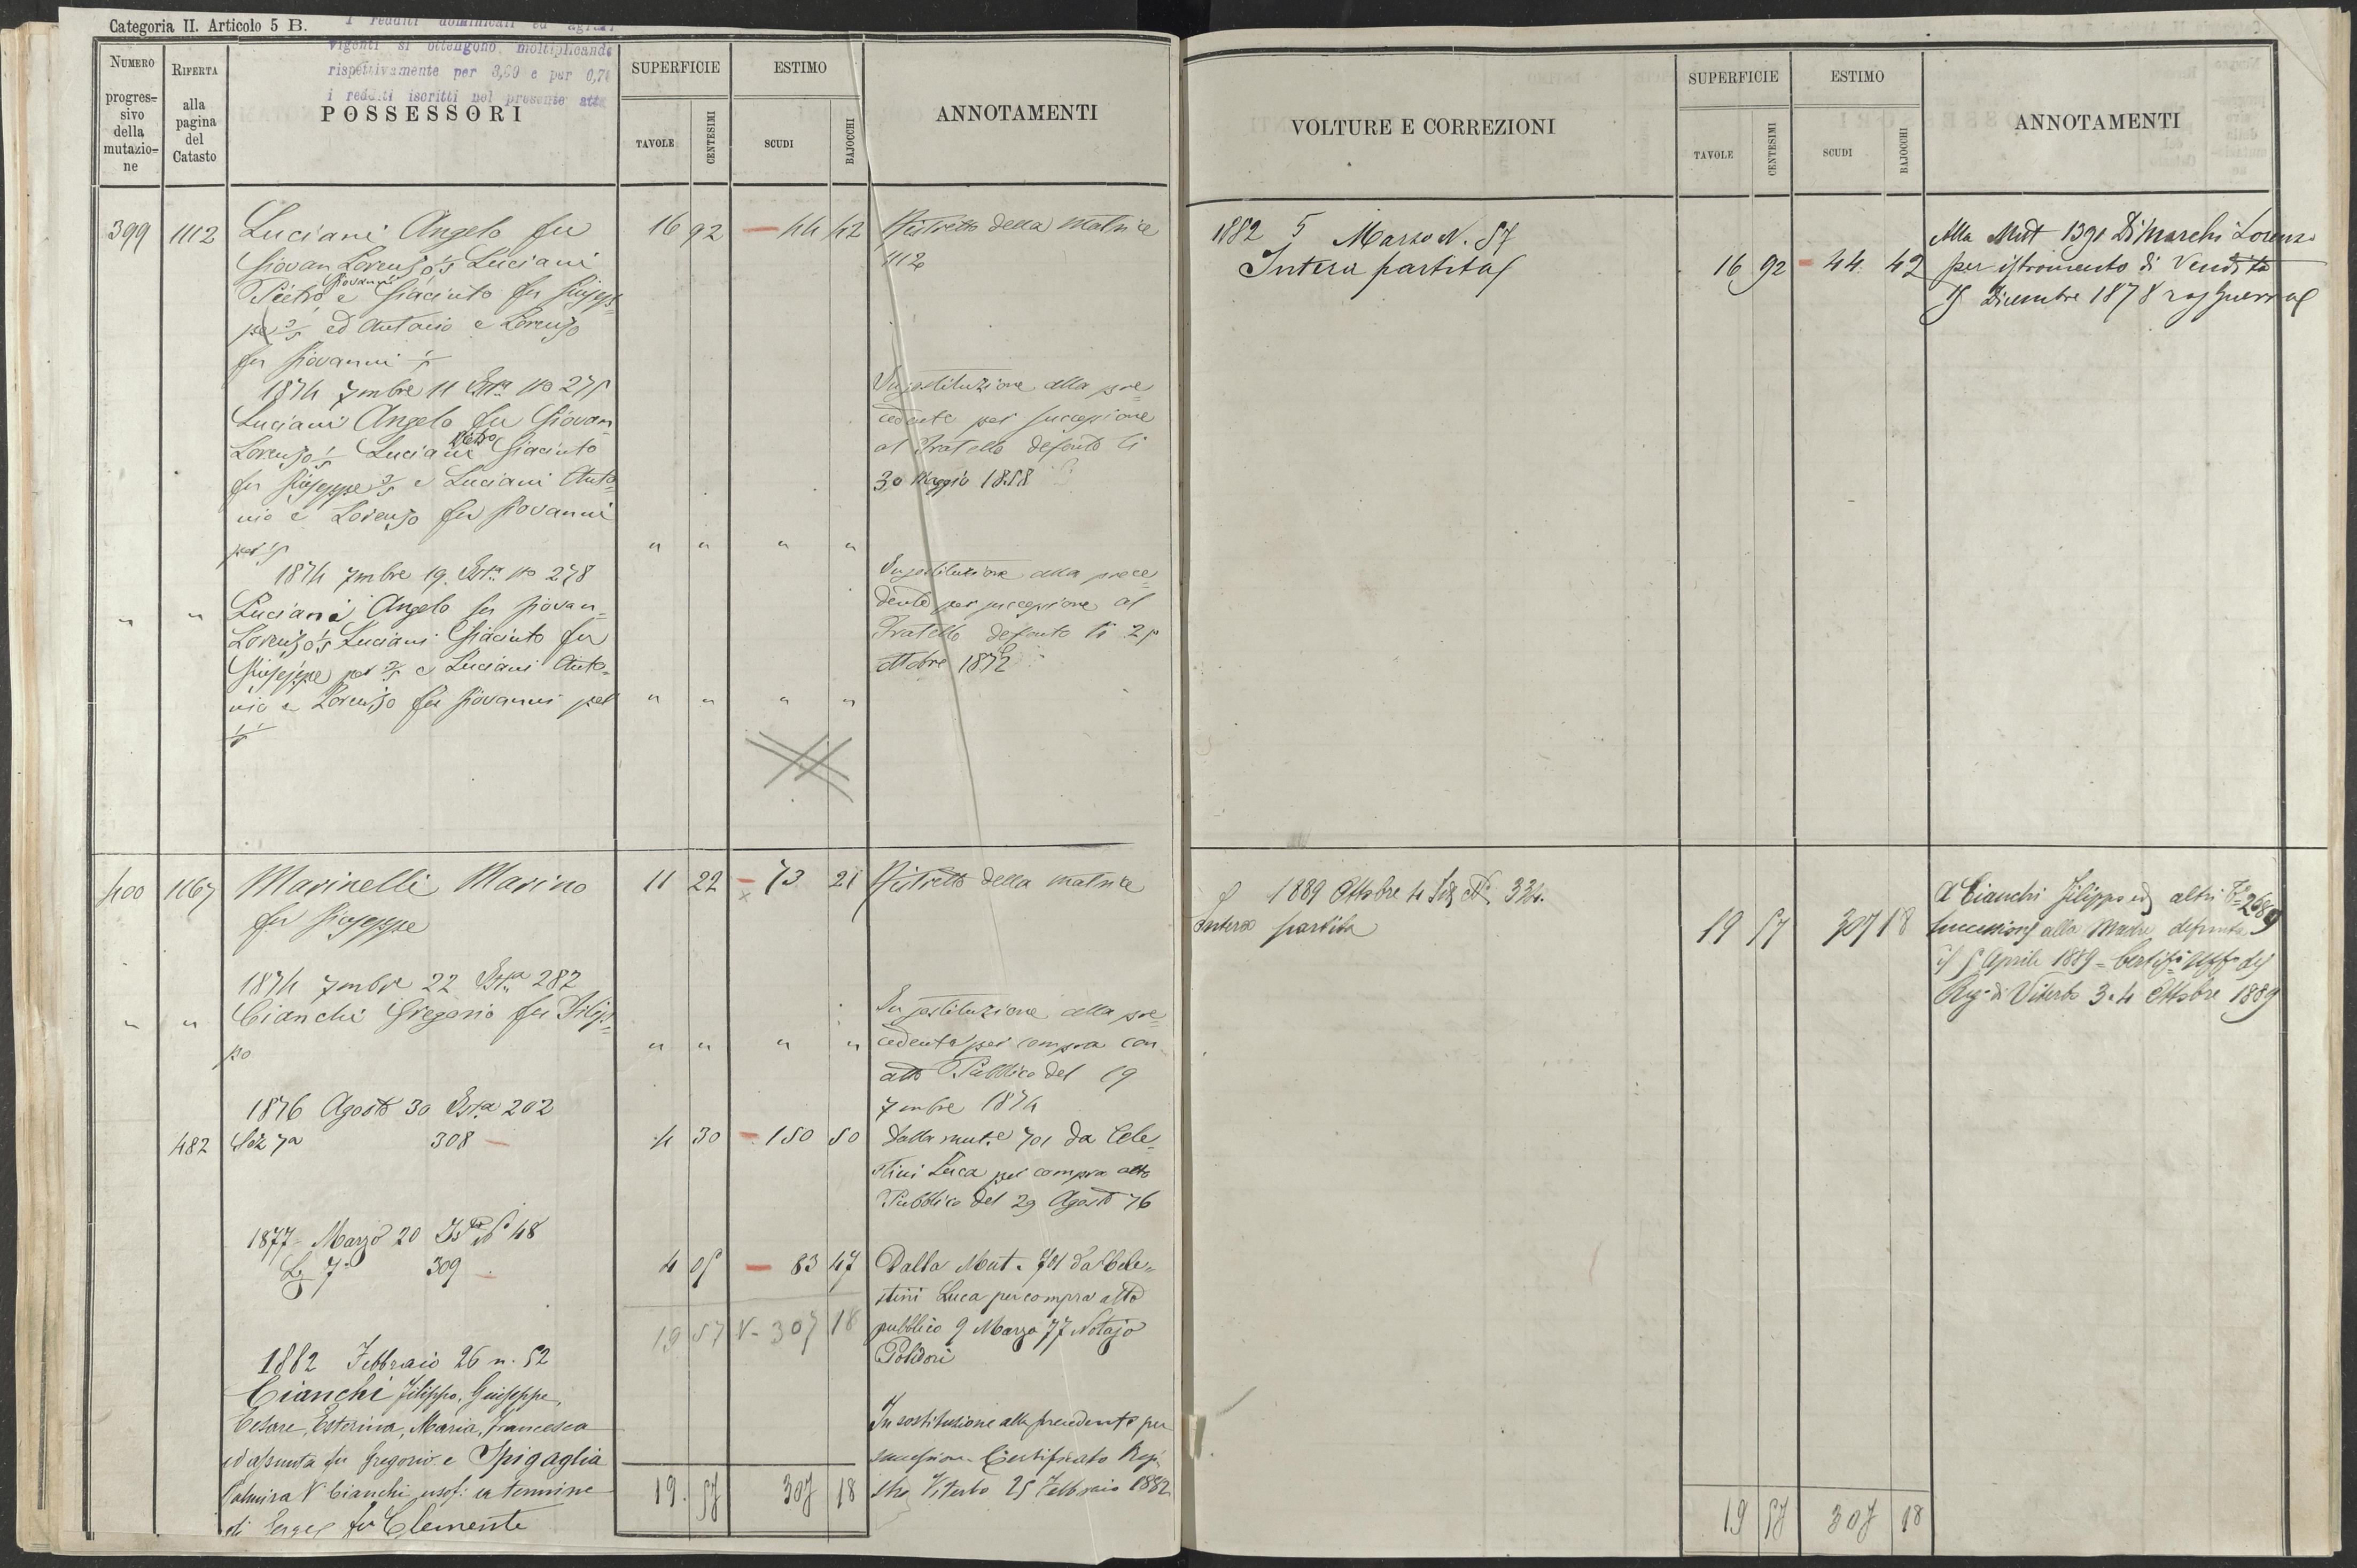 Categoria II. Articolo 5 B.
I redditi dominicali ed agrari
vigenti si ottengono moltiplicando
rispettivamente per 3,60 e per 0,74
i redditi iscritti nel presente atto
NUMERO progres= sivo della mutazio= ne
RIFERTA alla pagina del Catasto
POSSESSORI
SUPERFICIE
TAVOLE
CENTESIMI
ESTIMO
SCUDI
BAJOCCHI
ANNOTAMENTI
399 1112 Luciani Angelo fu 16 92 — 44 42 Ristretto della matrice
Giovan Lorenzo 1/5 Luciani 1112
Giovanni
Pietro e Giacinto fu Giusep=
pe 3/5 ed Antonio e Lorenzo
fu Giovanni 1/5
1874 7mbre 11 No 275
Luciani Angelo fu Giovan
Pietro
Lorenzo 1/5 Luciani Giacinto
fu Giuseppe 3/5 e Luciani Anto=
nio e Lorenzo fu Giovanni
per 1/5 " " " "
In sostituzione alla pre=
cedente per successione
al Fratello defonto li
30 Maggio 1858
1874 7mbre 19. No 278
" " Luciani Angelo fu Giovan=
Lorenzo 1/5 Luciani Giacinto fu
Giuseppe per 3/5 e Luciani Anto=
nio e Lorenzo fu Giovanni per " " " "
1/5
In sostituzione alla prece=
dente per successione al
Fratello defonto li 25
ottobre 1872
400 1167 Marinelli Marino 11 22 — 73 21 Ristretto della matrice
fu Giuseppe
1874 7mbre 22 282
" " Cianchi Gregorio fu Filip=
po " " " "
In sostituzione alla pre=
cedente per compra con
atto Pubblico del 19
7mbre 1874
1876 Agosto 30 202
482 Sez 7a 308 — 4 30 — 150 50 Dalla mut.e 701 da Cele=
stini Luca per compra atto
Pubblico del 29 Agosto 76
1877 = Marzo 20 No 48
7a 309 — 4 05 — 83 47 Dalla Mut. 701 da Cele=
stini Luca per compra atto
19 57 V- 307 18 pubblico 9 Marzo 77 Notajo
Polidori
1882 Febbraio 26 n. 52
Cianchi Filippo, Giuseppe,
Cesare, Esterina, Maria, Francesca
ed Assunta fu Gregorio e Spigaglia
Palmira V Cianchi usuf: in termine
di legge fu Clemente
In sostituzione alla precedente per
successione Certificato Regi=
stro Viterbo 25 Febbraio 1882
19. 57 307 18
VOLTURE E CORREZIONI
SUPERFICIE
TAVOLE
CENTESIMI
ESTIMO
SCUDI
BAJOCCHI
ANNOTAMENTI
1882 5 Marzo N. 57
Intera partita 16 92 — 44. 42
Alla Mut 1391 Di Marchi Lorenzo
per istromento di Vendita
15 Dicembre 1878 rog Guerra
1889 Ottobre 4 No 334.
Intera partita 19 57 307 18
A Cianchi Filippo ed altri 2689
successione alla Madre defunta
il 5 Aprile 1889 = Certifo Uffo del
Rego di Viterbo 3.4 Ottobre 1889
19 57 307 18